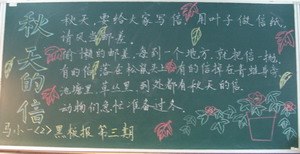 秋天的信
秋天，要给大家写信，用叶子做信纸，
请风当邮差。
偷懒的邮差，每到一个地方，就把信一抛，
有的信落在松鼠头上，有的信掉在青蛙井中，
池塘里，草丛里，到处都有秋天的信。
动物们急忙准备过冬。
马小一<2>黑板报 第三期